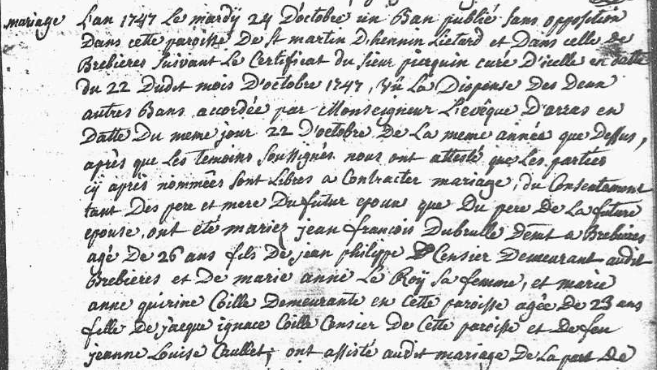 mariage L'an 1747 Le mardy 24 D'octobre un Ban publié sans opposition
Dans cette paroisse De St martin D'hennin Lietard et Dans celle de
Brebieres suivant Le Certificat du sieur pierquin curé D'icelle en datte
du 22 Dudit mois D'octobre 1747, vû La Dispense Des Deux
autres Bans accordée par Monseigneur L'evêque D'arras en
Datte Du meme jour 22 D'octobre De La meme année que Dessus,
après que Les temoins soussignés nous ont attesté que Les parties
cy après nommées sont Libres a Contracter mariage, du Consentement
tant Des pere et mere Du futur epoux que Du pere De La future
epouse, ont eté mariez jean françois Dubrulle Demt a Brebieres
agé De 26 ans fils De jean philippe Censier Demeurant audit
Brebieres et De marie anne Le Roÿ sa femme, et marie
anne quirine Coille Demeurante en Cette paroisse agée De 23 ans
fille De jacque ignace Coille Censier De Cette paroisse et De feu
jeanne Louise Caullet, ont assisté audit mariage De La part De